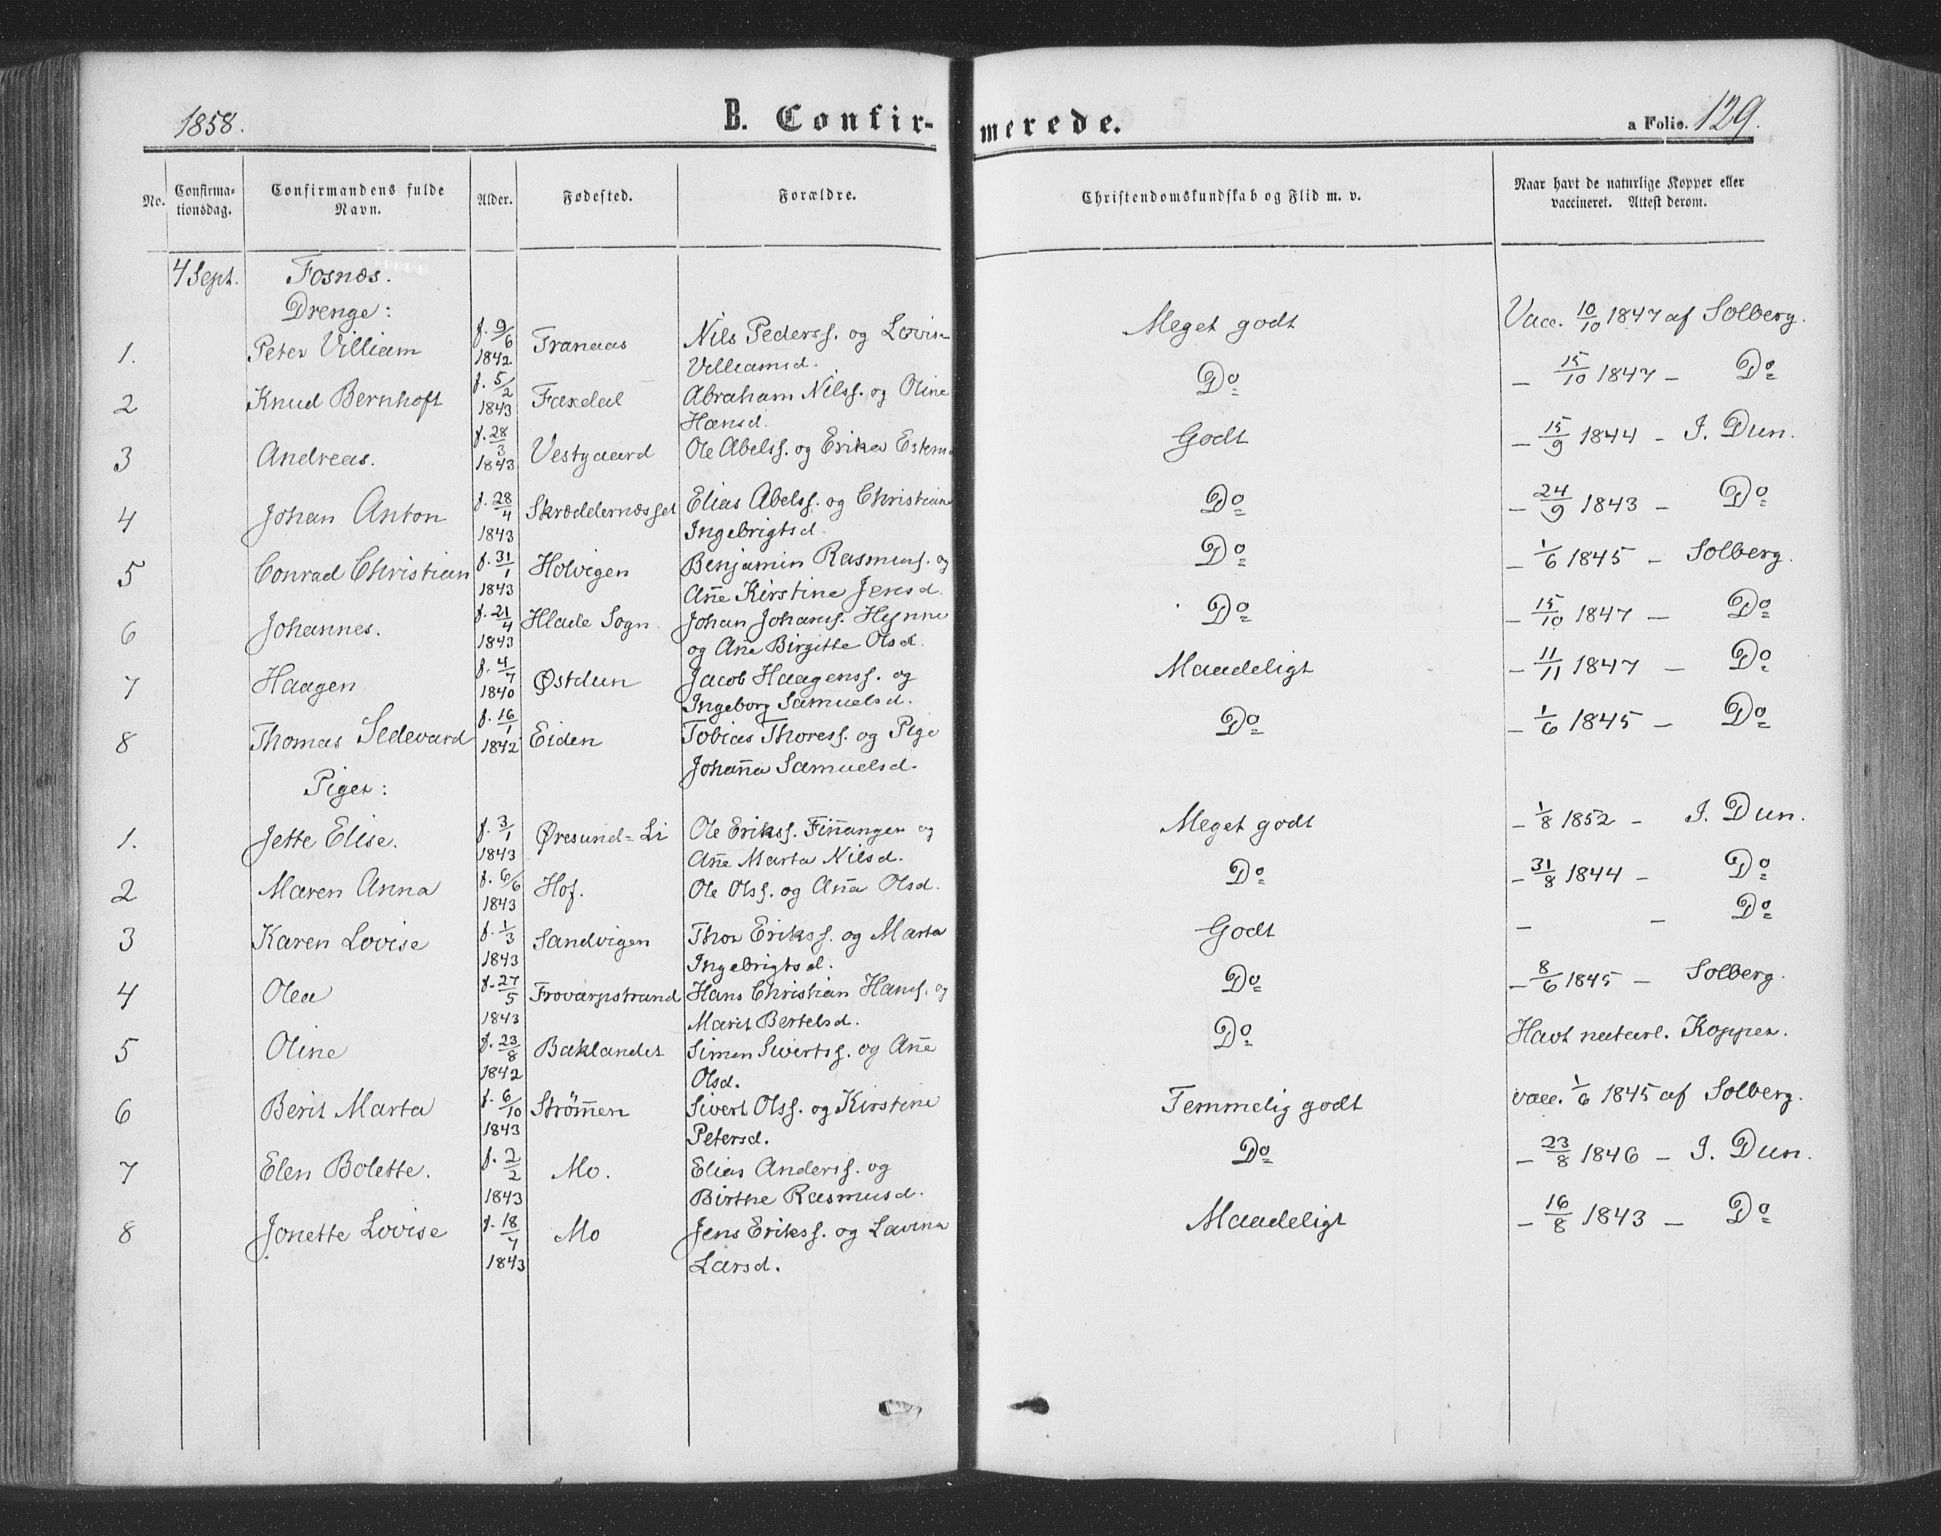 1858. B. Confir- merede. a Folio. 129.
No. Confirma-tionsdag. Confirmandens fulde Navn. Alder. Fødested. Forældre. Christendomskundskab og Flid m. v. Naar havt de naturlige Kopper eller vaccineret. Attest derom.
4 Sept. Fosnæs.
Drenge:
1. Peter Villiam f. 9/6 1842 Tranaas Nils Pederss. og Lovise Villiamsd. Meget godt Vacc. 10/10 1847 af Solberg.
2 Knud Bernhoft f. 5/2 1843 Faxdal Abraham Nilss. og Oline Hansd. Do – 15/10 1847 – Do
3 Andreas. f. 28/3 1843 Vestgaard Ole Abelss. og Erika Estensd Godt – 15/9 1844 – I. Dun.
4 Johan Anton f. 28/4 1843 Skræddernæsset Elias Abelss. og Christiane Ingebrigtsd. Do – 24/9 1843 – Do
5 Conrad Christian f. 31/1 1843 Holvigen Benjamin Rasmuss. og Ane Kirstine Jensd. Do – 1/6 1845 – Solberg.
6 Johannes. f. 21/4 1843 Hlade Sogn. Johan Johans. Hynne og Ane Birgitte Olsd. Do – 15/10 1847 – Do
7 Haagen f. 4/7 1840 Østdun Jacob Haagenss. og Ingeborg Samuelsd. Maadeligt – 11/11 1847 – Do
8 Thomas Sedevard f. 16/1 1842 Eiden Tobias Thoress. og Pige Johana Samuelsd. Do – 1/6 1845 – Do
Piger:
1. Jette Elise. f. 3/1 1843 Øresund-Li Ole Erikss. Finangen og Ane Marta Nilsd. Meget godt – 1/8 1852 – I. Dun.
2 Maren Anna f. 6/6 1843 Hof. Ole Olss. og Ana Olsd. Do – 31/8 1844 – Do
3 Karen Lovise f. 1/3 1843 Sandvigen Thor Erikss. og Marta Ingebrigtsd. Godt – – Do
4 Olea f. 27/5 1843 Frovarpstrand Hans Christian Hans. og Marit Bertelsd. Do – 8/6 1845 – Solberg.
5 Oline f. 23/8 1842 Baklandet Simon Sivertss. og Ane Olsd. Do Havt naturl. Kopper.
6 Berit Marta f. 6/10 1843 Strømen Sivert Olss. og Kirstine Petersd. Temmelig godt vacc. 1/6 1845 af Solberg.
7 Elen Bolette. f. 2/2 1843 Mo. Elias Anderss. og Birthe Rasmusd. Do – 23/8 1846 – I. Dun.
8 Jonette Lovise f. 18/7 1843 Mo Jens Erikss. og Lavina Larsd. Maadeligt – 16/8 1843 – Do